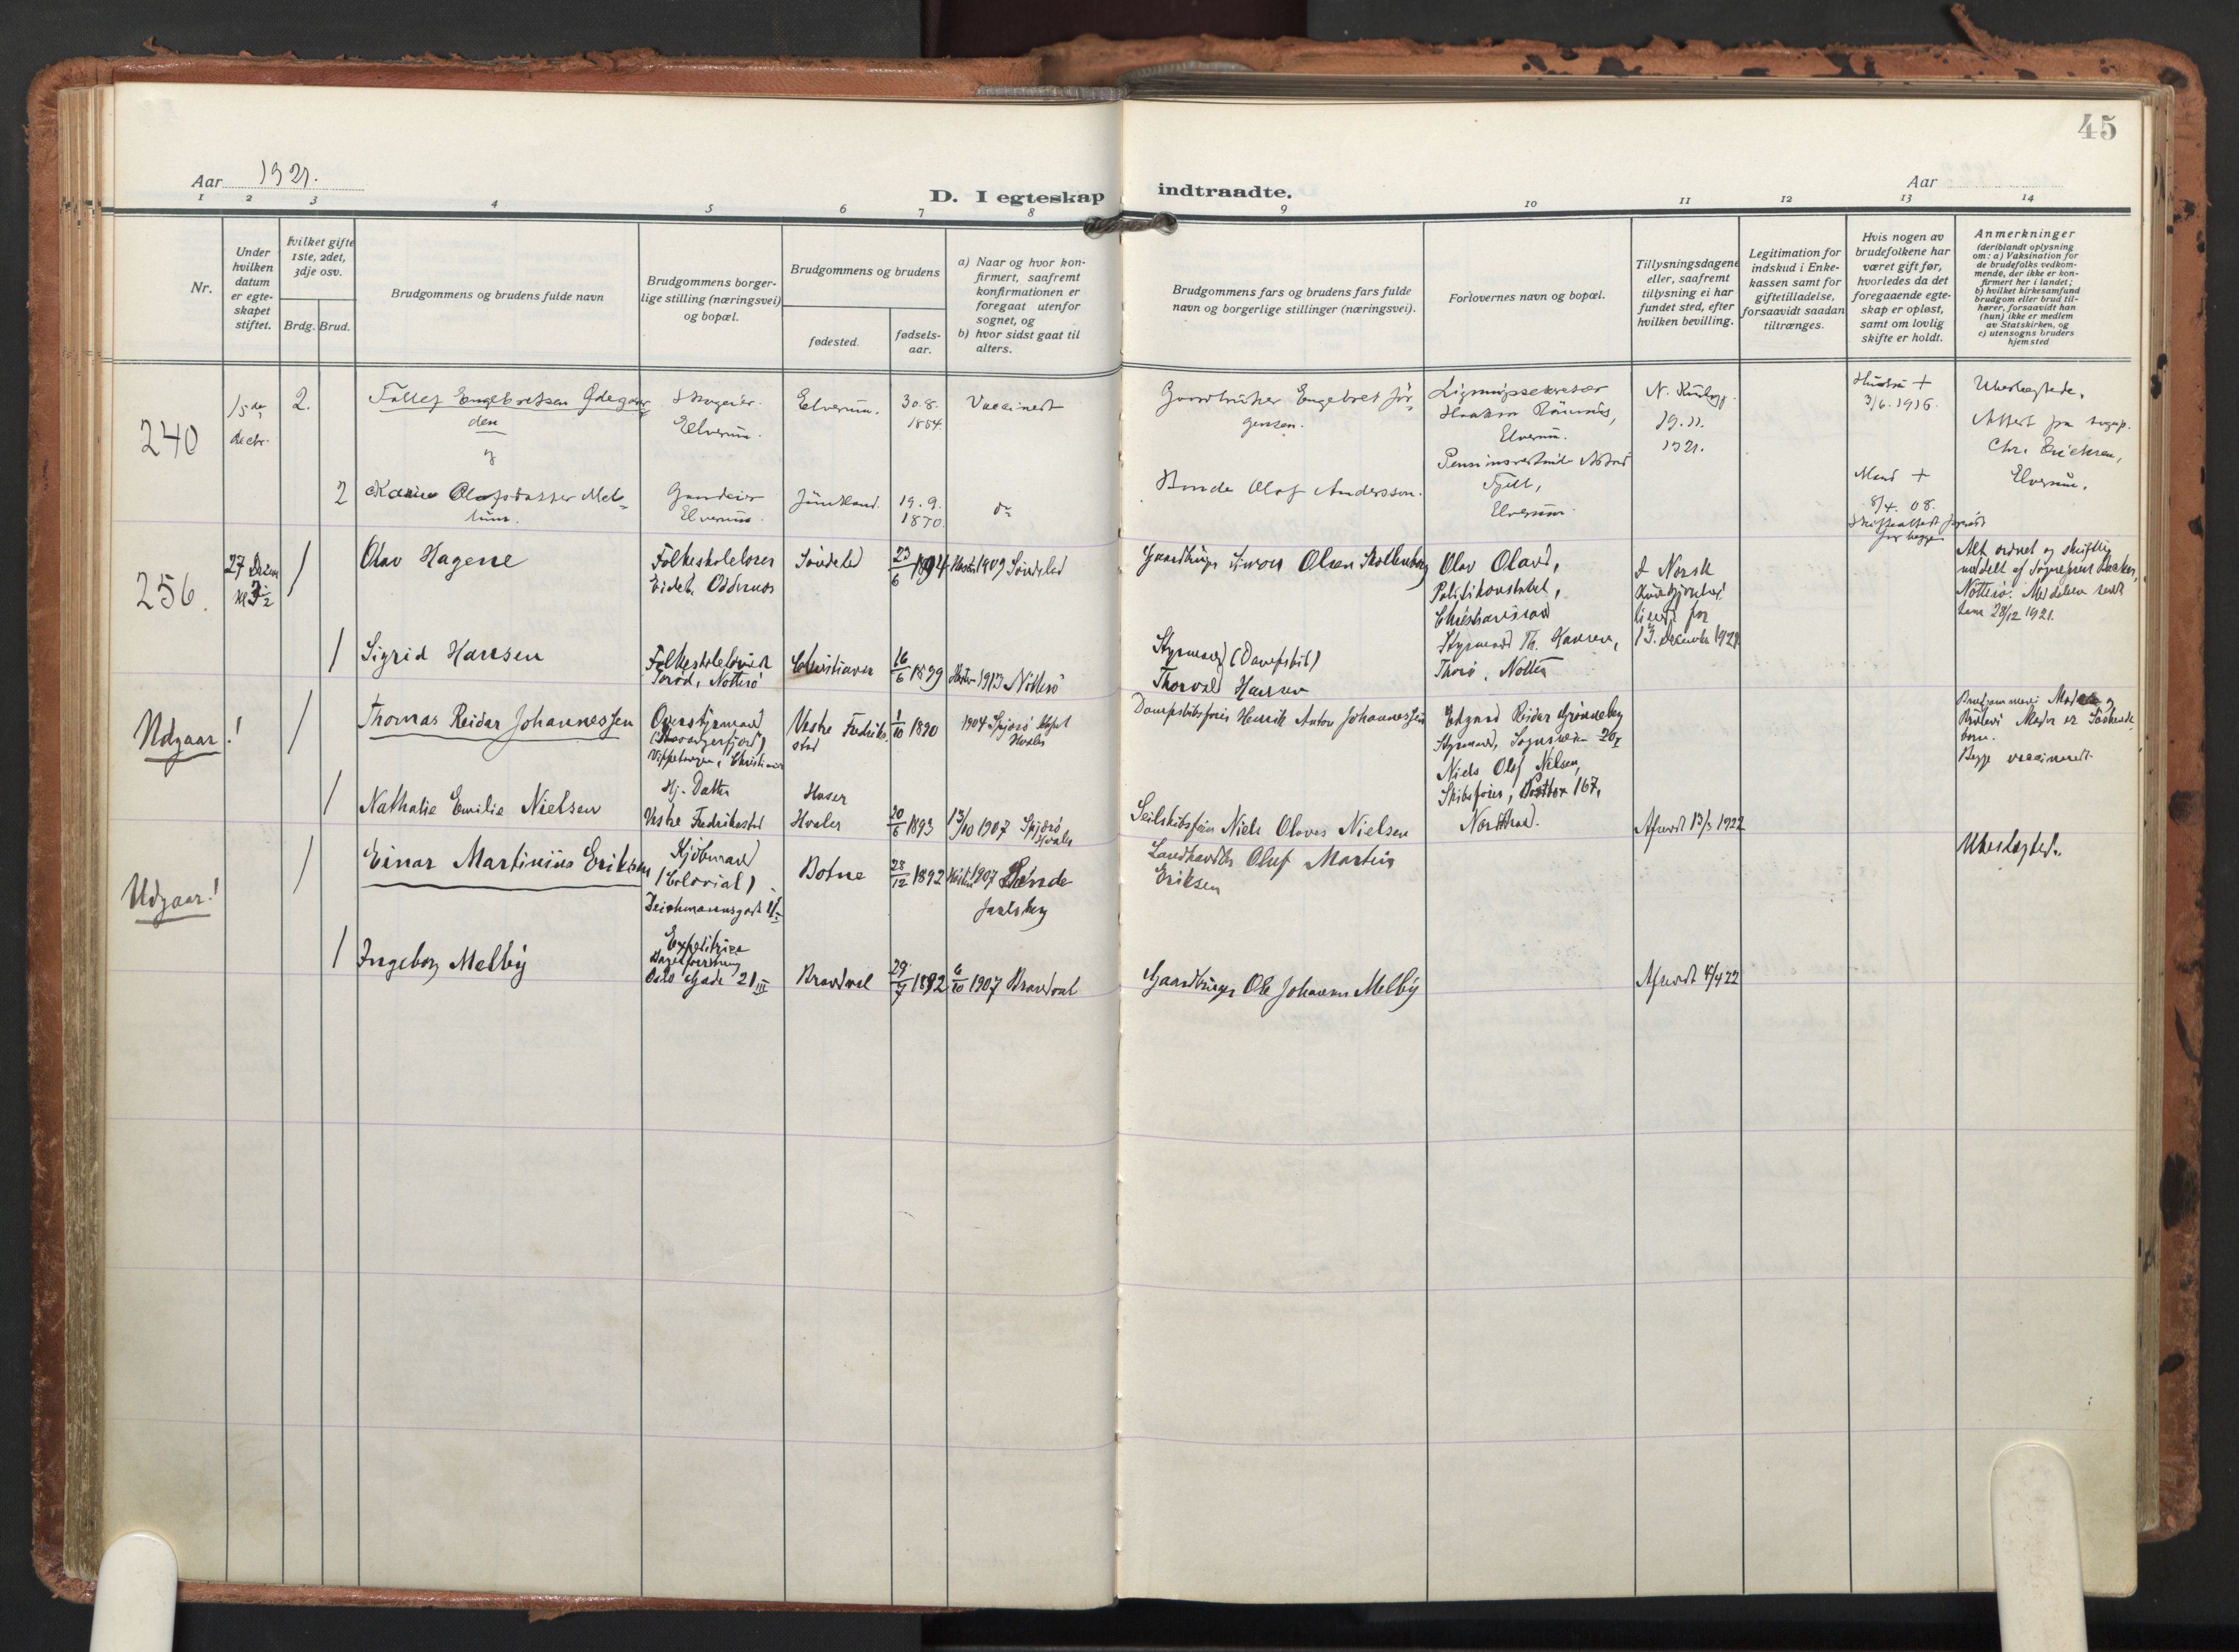 45
Aar 1921.
D. I egteskap indtraadte.
Aar
1 2 3 4 5 6 7 8 9 10 11 12 13 14
Nr.
Under
hvilken
datum
er egte-
skapet
stiftet.
hvilket gifte
1ste, 2det,
3dje osv.
Brdg. Brud.
Brudgommens og brudens fulde navn
Brudgommens borger-
lige stilling (næringsvei)
og bopæl.
Brudgommens og brudens
fødested.
fødsels-
aar.
a) Naar og hvor kon-
firmert, saafremt
konfirmationen er
foregaat utenfor
sognet, og
b) hvor sidst gaat til
alters.
Brudgommens fars og brudens fars fulde
navn og borgerlige stillinger (næringsvei).
Forlovernes navn og bopæl.
Tillysningsdagene
eller, saafremt
tillysning ei har
fundet sted, efter
hvilken bevilling.
Legitimation for
indskud i Enke-
kassen samt for
giftetilladelse,
forsaavidt saadan
tiltrænges.
Hvis nogen av
brudefolkene har
været gift før,
hvorledes da det
foregaaende egte-
skap er opløst,
samt om lovlig
skifte er holdt.
Anmerkninger
(deriblandt oplysning
om: a) Vaksination for
de brudefolks vedkom-
mende, der ikke er kon-
firmert her i landet;
b) hvilket kirkesamfund
brudgom eller brud til-
hører, forsaavidt han
(hun) ikke er medlem
av Statskirken, og
c) utensogns bruders
hjemsted
240
15de
decbr.
2.
Engebretsen Ødegaar-
den
og
Elverum.
Elverum.
30.8.
1854.
Vaccinert
Gaardbruker Engebret Jör-
gensen.
Haakon
Elverum.
19.11.
1921.
Hustru +
3/6. 1916.
Ubeslegtede.
Attest fra
Chr. Erichsen,
Elverum.
2
Karin Olofsdatter Mel-
Gaardeier
Elverum.
Jämtland.
19.9.
1870.
do
Bonde Olof Andersson.
Elverum
Mand +
8/4. 08.
256.
27
1
Olav Hagene
Folkeskolelærer
Eidet, Oddernes
Söndeled
23/6 1894
Høsten 1909 Söndeled
Gaardbruger Olsen
Olav Olavd,
Politikonstabel,
Christianssand
Norsk
13. December 1921
Alt ordnet og skriftlig
meddelt af Sogneprest
Nötterö. Meddelelse sendt
28/12 1921.
1
Sigrid Hansen
Folkeskolelærer
Torød, Nötterö
Christiania
16/6 1899
Høsten 1913 Nötterö
Styrmand (Dampskib)
Thorvald Hansen
Styrmand Th. Hansen,
Udgaar!
1
Thomas Reidar Johannessen
Overstyrmand
(Stavangerfjord)
Vippetangen, Christiania
Vestre Fredrik-
stad
1/10 1890
1904 Spjærø
Hvaler
Dampskibsfører Henrik Anton Johannessen
Edgard Reidar Grønneberg
Styrmand, Sognsveien 20
Niels Olaf Nilsen,
Skibsfører, Postbox 167,
Nordstrand.
Brudgommens Moder og
Brudens Moder er Södskende-
børn.
Begge vaccineret.
1
Nathalie Emilie Nielsen
Hj. Datter
Vestre Fredrikstad
Huser
Hvaler
20/6 1893
13/10 1907 Spjærø
Hvaler
Seilskibsfører Niels Olaves Nielsen
Afsendt 13/3 1922
Udgaar!
1
Einar Martinius Eriksen
Kjöbmand
(Colonial)
Deichmannsgade
Botne
28/12 1892
Høsten 1907 Sande
Jarlsberg
Landhandler Oluf Martin
Eriksen
Ubeslegtede.
1
Ingeborg Melby
Expeditrice
Oslo Gade 21 III
Brandval
29/7 1892
6/10 1907 Brandval
Gaardbruger Ole Johannes Melby
Afsendt 4/4 22